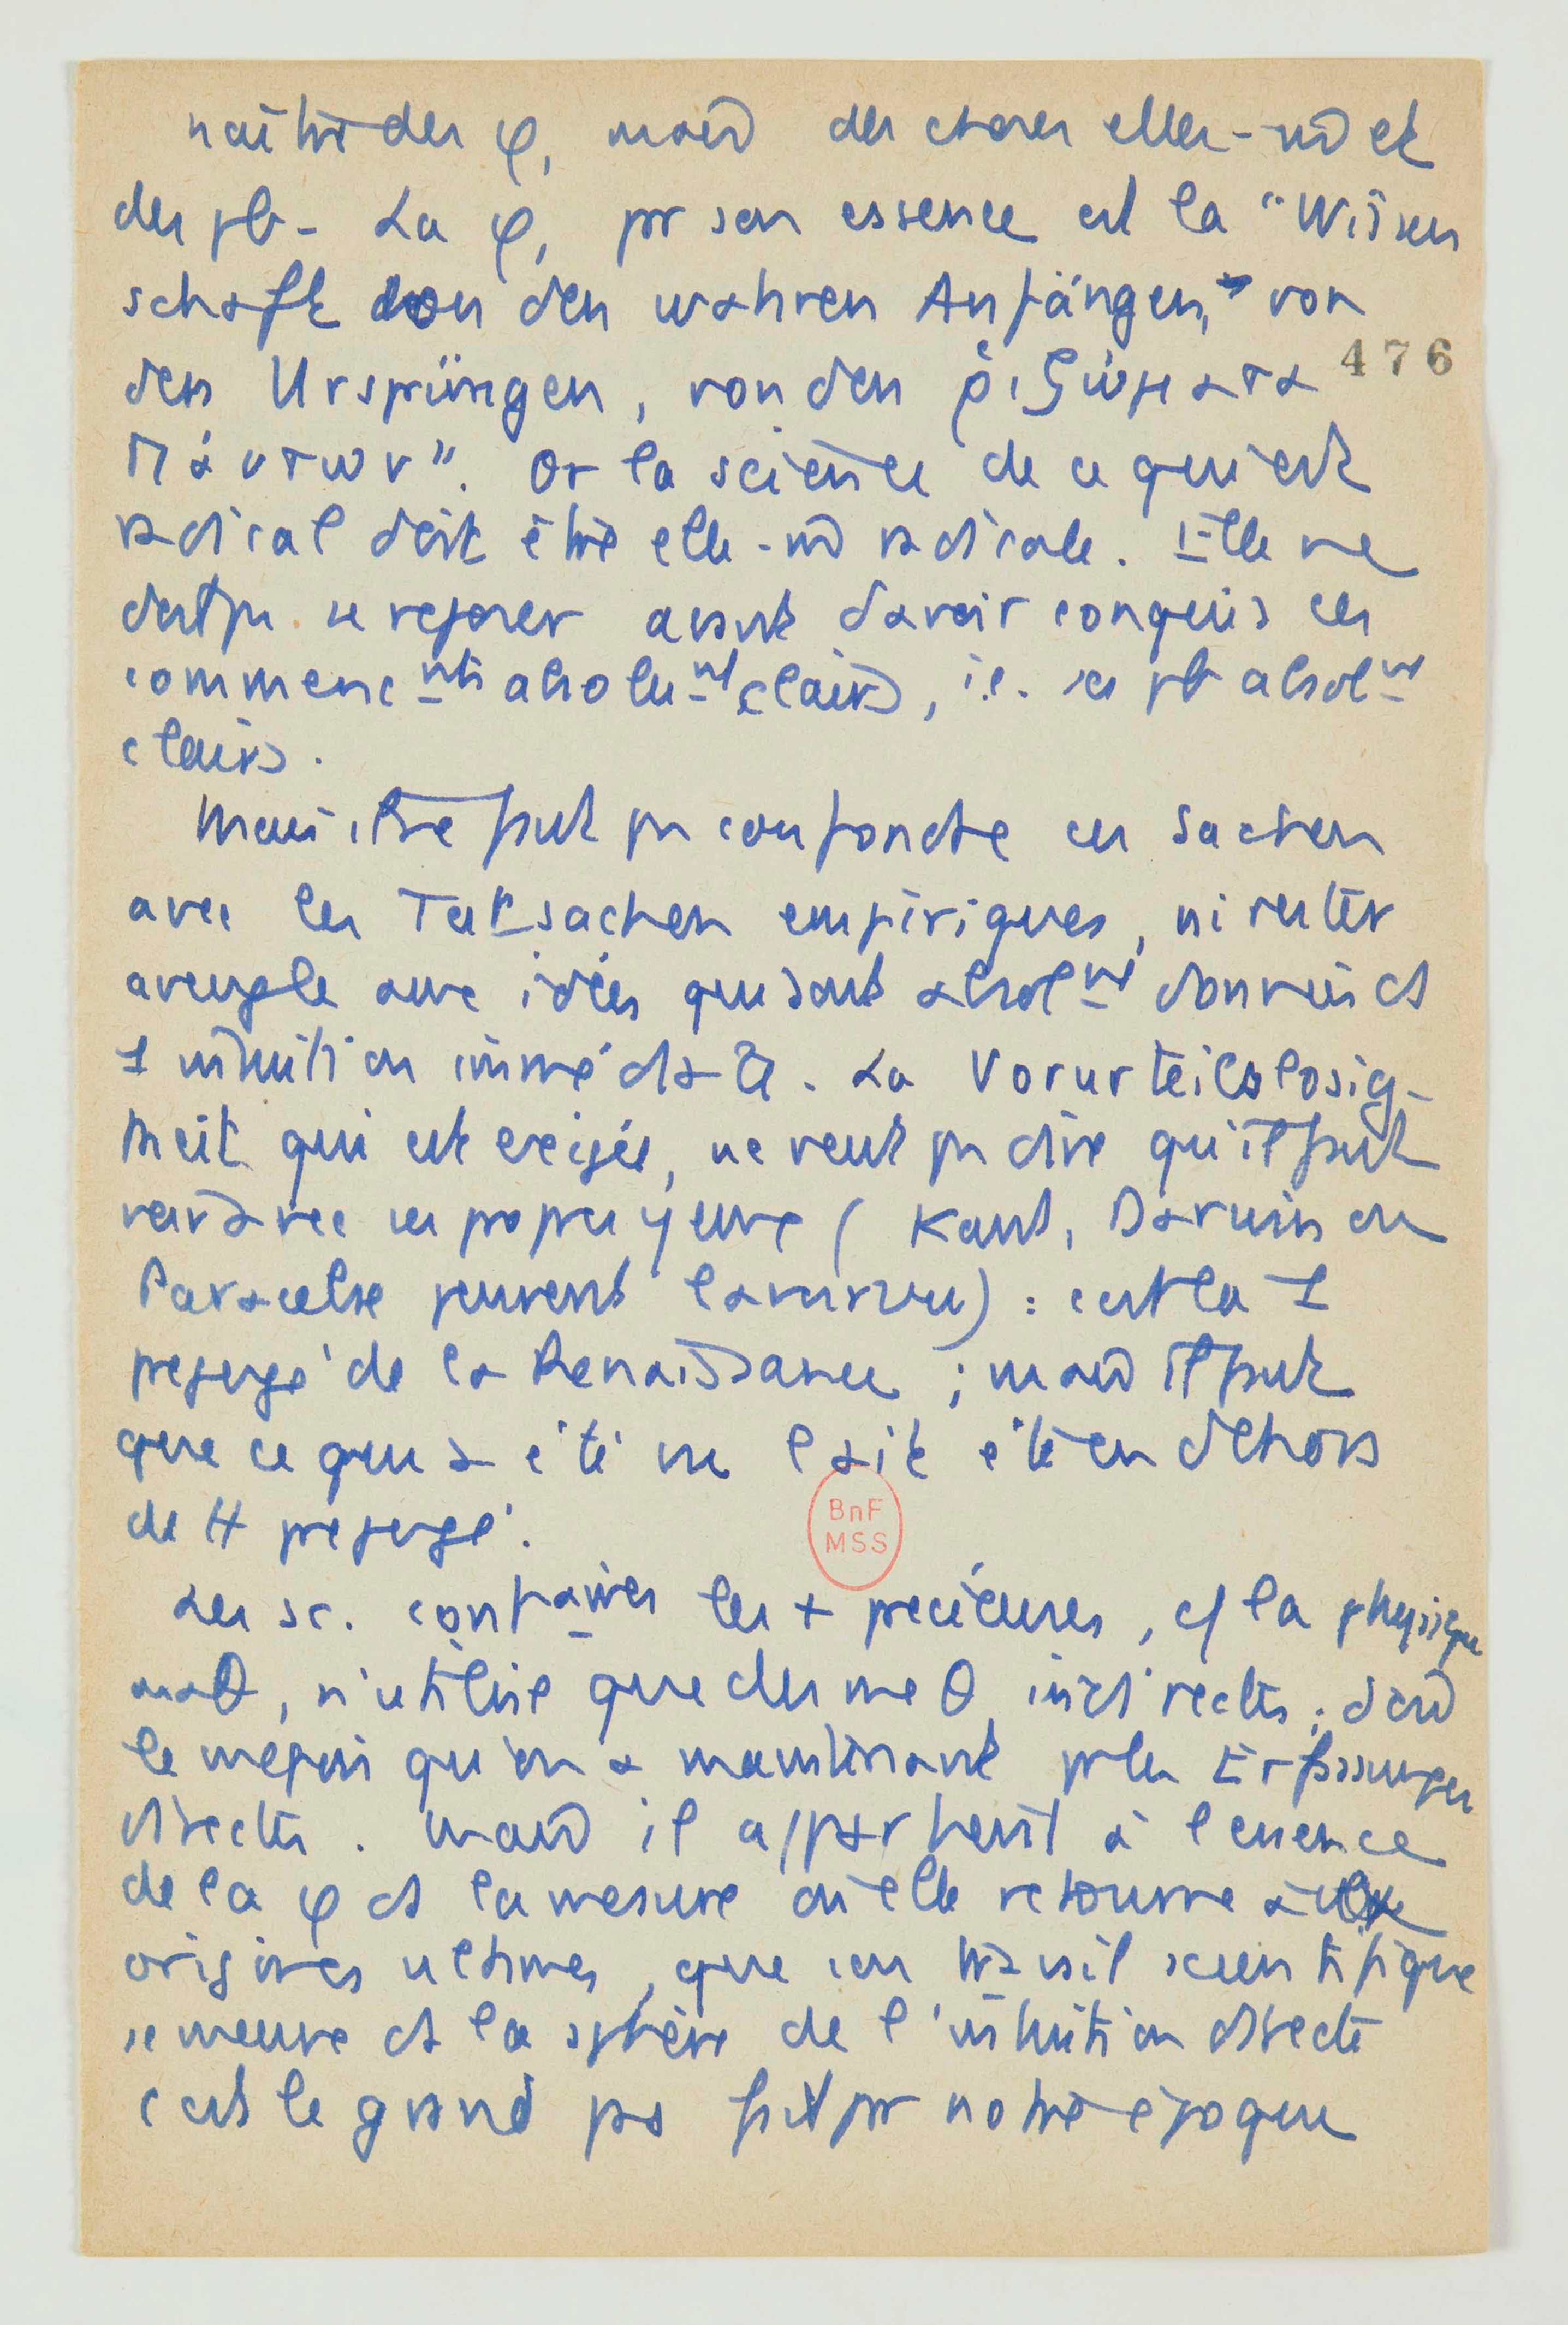 naître des φ, mais des choses elles-m̂ et
des pb - La φ, pr son essence est la "Wissen
schaft von den wahren Anfängen, von
den Ursprüngen, von den ῥιζώματα
476
πάντων". Or la science de ce qui est
radical doit être elle-m̂ radicale. Elle ne
doit pas se reposer avant d'avoir conquis ses
commencmts absolumt clairs, i.e. ses pb absolmt
clairs.
Mais il ne faut pas confondre ces Sachen
avec les Tatsachen empiriques, ni rester
aveugle aux idées qui sont absolmt données ds
1 intuition immédiate. La Vorurteilslosig-
keit qui est exigée, ne veut pas dire qu'il faut
voir avec ses propres yeux (Kant, Darwin ou
Paracelse peuvent l'avoir vu) : c'est là 1
préjugé de la Renaissance ; mais il faut
que ce qui a été vu l'ait été en dehors
de tt préjugé.
Les sc. contraires les + précieuses, c/ la physique
maθ, n'utilise que des méθ indirectes ; d'où
le mépris qu'on a maintenant pr les Erfassungen
directes. Mais il appartient à l'essence
de la φ ds la mesure où elle retourne aux
origines ultimes, que son travail scientifique
se meuve ds la sphère de l'intuition directe
c'est le grand pas fait par notre époque
BnF
MSS